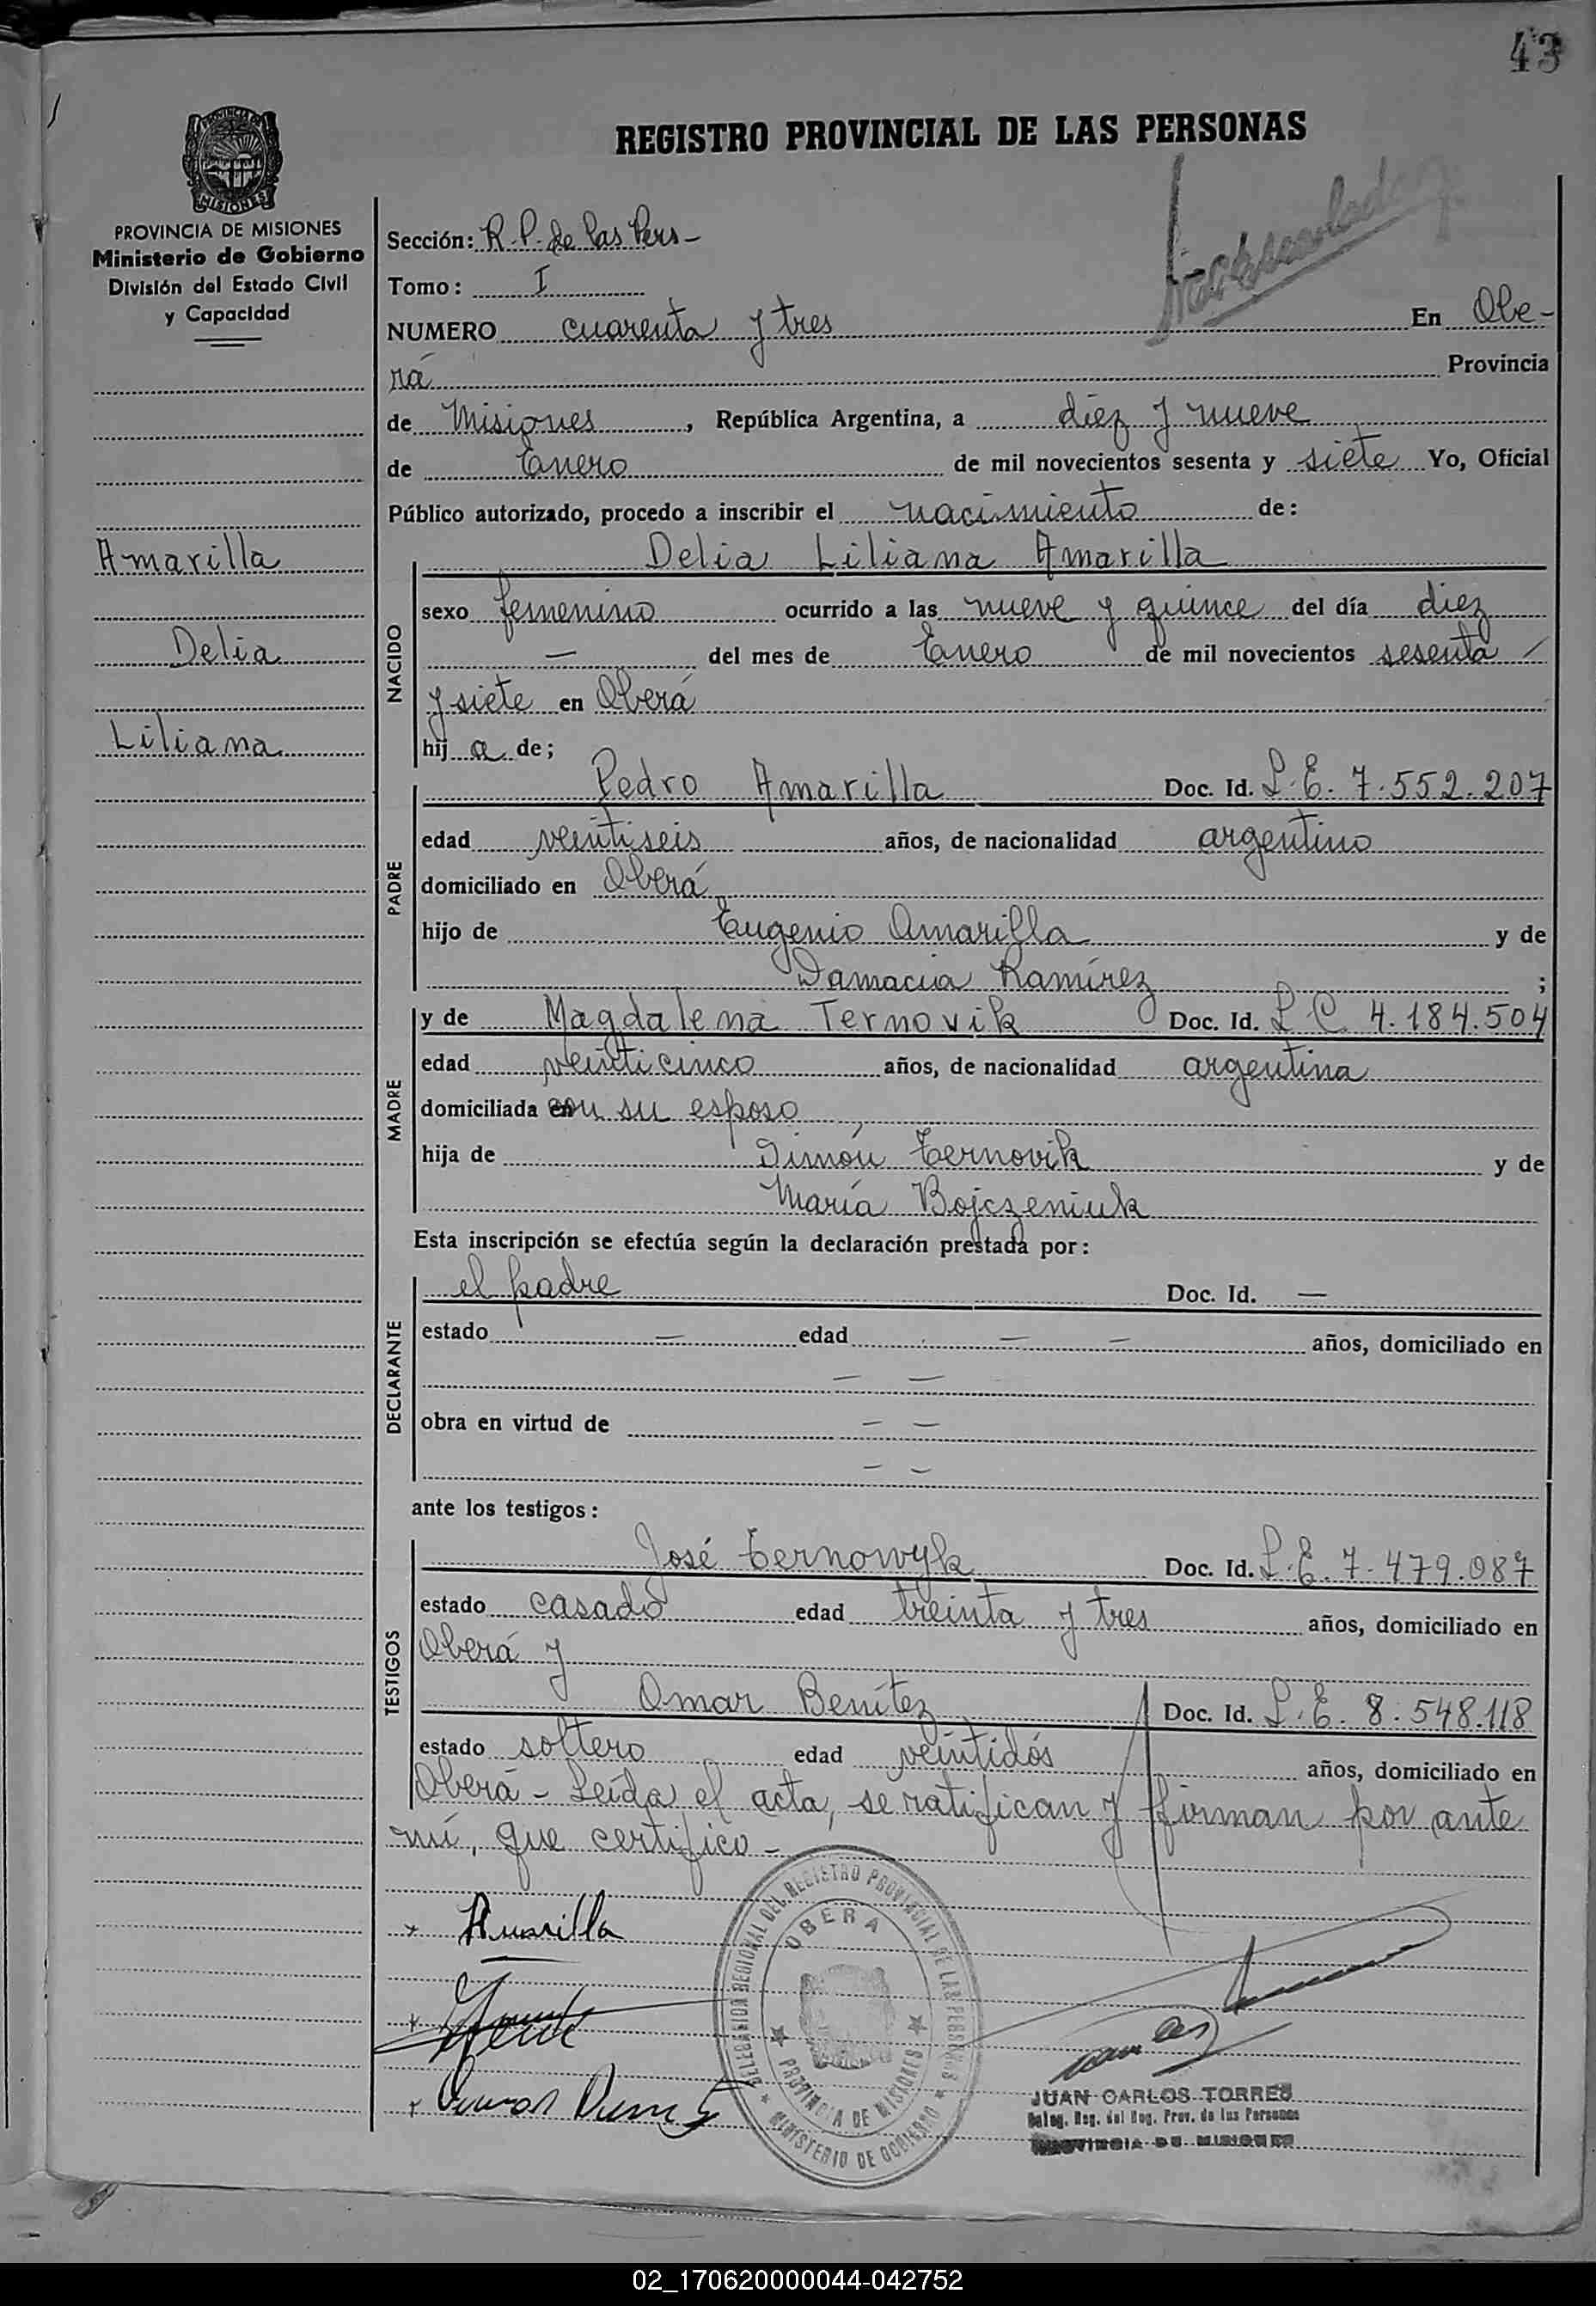 43
REGISTRO PROVINCIAL DE LAS PERSONAS
PROVINCIA DE MISIONES
Ministerio de Gobierno
División del Estado Civil
y Capacidad
Amarilla
Delia
Liliana
Sección: R. P. de las Pers -
Tomo: I
NUMERO cuarenta y tres En Obe-
rá Provincia
de Misiones, República Argentina, a diez y nueve
de Enero de mil novecientos sesenta y siete Yo, Oficial
Público autorizado, procedo a inscribir el nacimiento de:
NACIDO
Delia Liliana Amarilla
sexo femenino ocurrido a las nueve y quince del día diez
— del mes de Enero de mil novecientos sesenta
y siete en Oberá
hij a de;
PADRE
Pedro Amarilla Doc. Id. L. E. 7.552.207
edad veintiseis años, de nacionalidad argentino
domiciliado en Oberá
hijo de Eugenio Amarilla y de
Damacia Ramírez ;
MADRE
y de Magdalena Ternovik Doc. Id. L C 4.184.504
edad veinticinco años, de nacionalidad argentina
domiciliada con su esposo
hija de Simón Ternovik y de
María Bojczeniuk
Esta inscripción se efectúa según la declaración prestada por:
DECLARANTE
el padre Doc. Id. —
estado — edad — — años, domiciliado en
— —
obra en virtud de — —
— —
ante los testigos:
TESTIGOS
José Ternowyk Doc. Id. L. E. 7.479.087
estado casado edad treinta y tres años, domiciliado en
Oberá y
Omar Benítez Doc. Id. L. E. 8.548.118
estado soltero edad veintidós años, domiciliado en
Oberá - Leída el acta, se ratifican y firman por ante
mí, que certifico -
Amarilla
DELEGACION REGIONAL DEL REGISTRO PROVINCIAL DE LAS PERSONAS
OBERA
PROVINCIA DE MISIONES
MINISTERIO DE GOBIERNO
JUAN CARLOS TORRES
Deleg. Reg. del Reg. Prov. de las Personas
PROVINCIA DE MISIONES
02_170620000044-042752